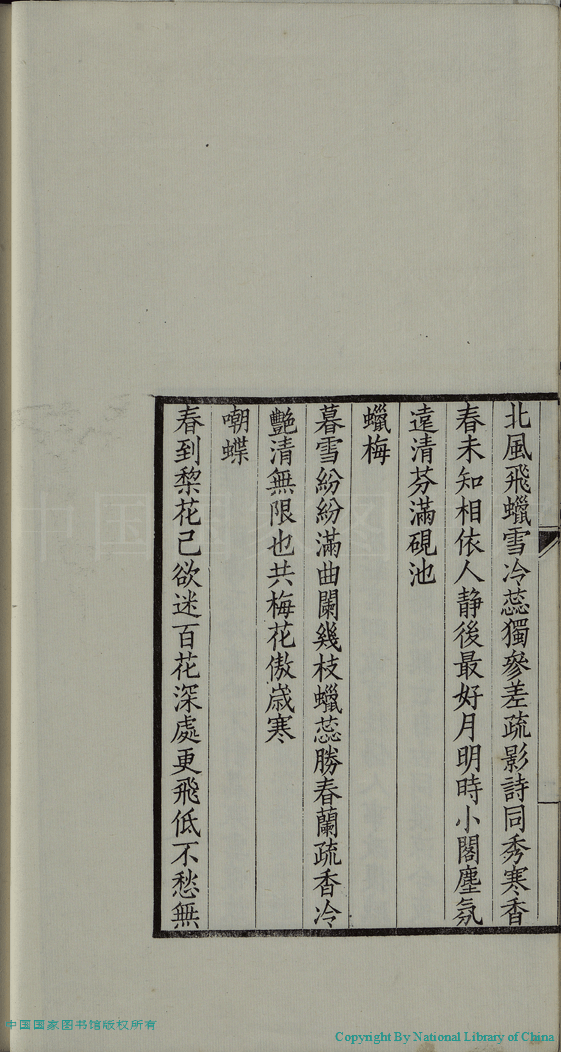 北風飛蠟雪冷蕊獨參差疏影詩同秀寒香
春未知相依人静後最好月明時小閣塵氛
遠清芬滿硯池
蠟梅
暮雪紛紛滿曲闌幾枝蠟蕊勝春蘭疏香冷
艷清無限也共梅花傲歲寒
嘲蝶
春到棃花己欲迷百花深處更飛低不愁無
中国国家图书馆版权所有
Copyright By National Library of China